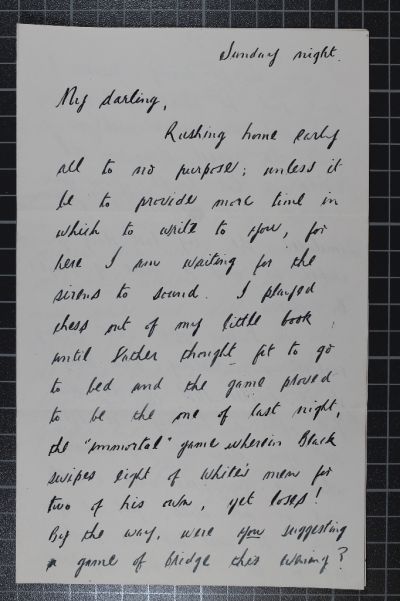 Sunday night.
My darling,
Rushing home early
all to no purpose; unless it
be to provide more time in
which to write to you, for
here I am waiting for the
sirens to sound. I played
chess out of my little book,
until Father thought fit to go
to bed and the game proved
to be the one of last night,
the "immortal" game wherein Black
swipes eight of White's men for
two of his own, yet loses!
By the way, were you suggesting
a game of bridge this evening?